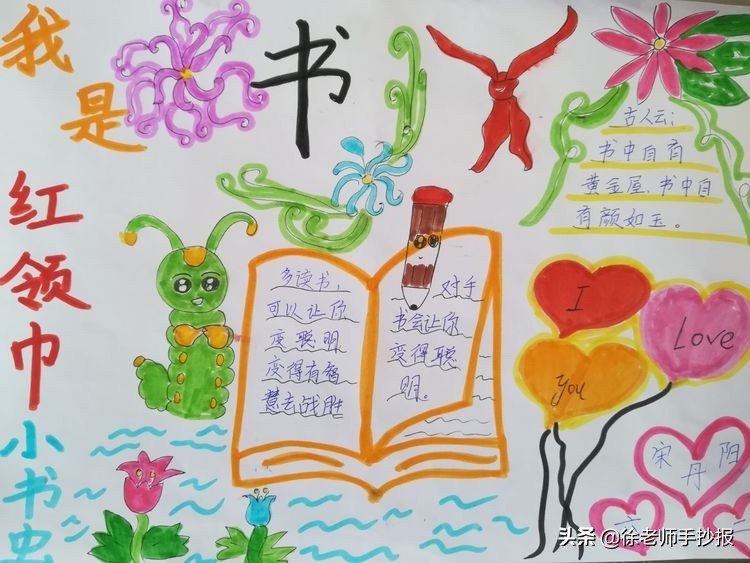 我是
书
红领巾
小书虫
古人云:
书中自有
黄金屋、书中自
有颜如玉。
多读书,
可以让你
变聪明
变得有智
慧去战胜
对手
书会让你
变得聪
明。
I
Love
You
宋丹阳
六
二
头条 @徐老师手抄报